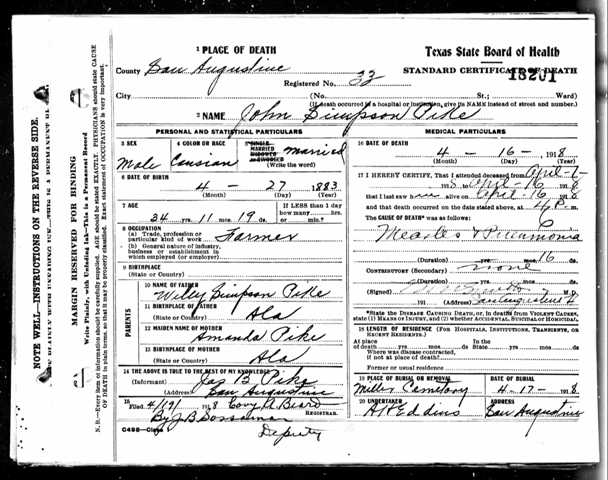 1 PLACE OF DEATH
Texas State Board of Health
County San Augustine
Registered No. 33
STANDARD CERTIFICATE OF DEATH
City (No. St.; Ward)
(If death occurred in a hospital or institution, give its NAME instead of street and number.)
2 NAME John Simpson Pike
PERSONAL AND STATISTICAL PARTICULARS
3 SEX
Male
4 COLOR OR RACE
SINGLE
MARRIED
WIDOWED
married
(Write the word)
6 DATE OF BIRTH
4 — 27 1883
(Month) (Day) (Year)
7 AGE
34 yrs. 11 mos. 19 ds.
If LESS than 1 day
how many hrs.
or min.?
8 OCCUPATION
(a) Trade, profession or
particular kind of work Farmer
(b) General nature of industry,
business or establishment in
which employed (or employer)
9 BIRTHPLACE
(State or Country)
PARENTS
10 NAME OF FATHER
Simpson Pike
11 BIRTHPLACE OF FATHER
(State or Country) Ala
12 MAIDEN NAME OF MOTHER
Amanda Pike
13 BIRTHPLACE OF MOTHER
(State or Country) Ala
14 THE ABOVE IS TRUE TO THE BEST OF MY KNOWLEDGE
(Informant) Jas B Pike
(Address) San Augustine
15
Filed 4/19 1918
REGISTRAR.
Deputy
MEDICAL PARTICULARS
16 DATE OF DEATH
4 — 16 — 1918
(Month) (Day) (Year)
17 I HEREBY CERTIFY, That I attended deceased from April-7-
1918, to April-16 1918
that I last saw him alive on April-16 1918
and that death occurred on the date stated above, at P. m.
The CAUSE OF DEATH* was as follows:
Measles & Pneumonia
(Duration) yrs. mos. 16 ds.
CONTRIBUTORY (Secondary) none
(Duration) yrs. mos. ds.
(Signed) M. D.
191 (Address) San Augustine
*State the DISEASE CAUSING DEATH, or, in deaths from VIOLENT CAUSES,
state (1) MEANS OF INJURY, and (2) whether ACCIDENTAL, SUICIDAL or HOMICIDAL.
18 LENGTH OF RESIDENCE (FOR HOSPITALS, INSTITUTIONS, TRANSIENTS, OR
RECENT RESIDENTS.)
At place
of death yrs. mos. ds.
In the
State yrs. mos. ds.
Where was disease contracted,
if not at place of death?
Former or usual residence
19 PLACE OF BURIAL OR REMOVAL
DATE OF BURIAL
4-17- 1918
20 UNDERTAKER
ADDRESS
San Augustine
NOTE WELL—INSTRUCTIONS ON THE REVERSE SIDE.
MARGIN RESERVED FOR BINDING
Write Plainly, with Unfading Ink—This is a Permanent Record
N. B.—Every item of information should be carefully supplied. AGE should be stated EXACTLY. PHYSICIANS should state CAUSE
OF DEATH in plain terms, so that it may be properly classified. Exact statement of OCCUPATION is very important.